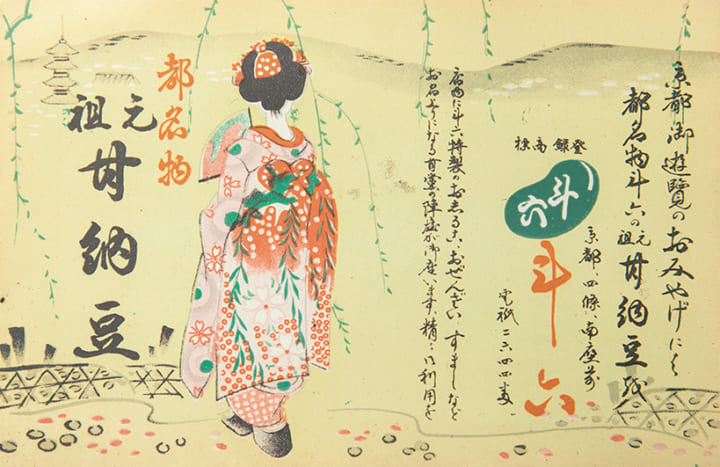 京都御遊覧のおみやげにハ
都名物斗六の元祖甘納豆を
京都四條南座前
登録商標
斗六
斗六
電祇二六四四番
店内に斗六特製のお志るこ、おぜんざい すましなど
になる甘党の陣が御座います精々御利用を
都名物
元祖
甘納豆